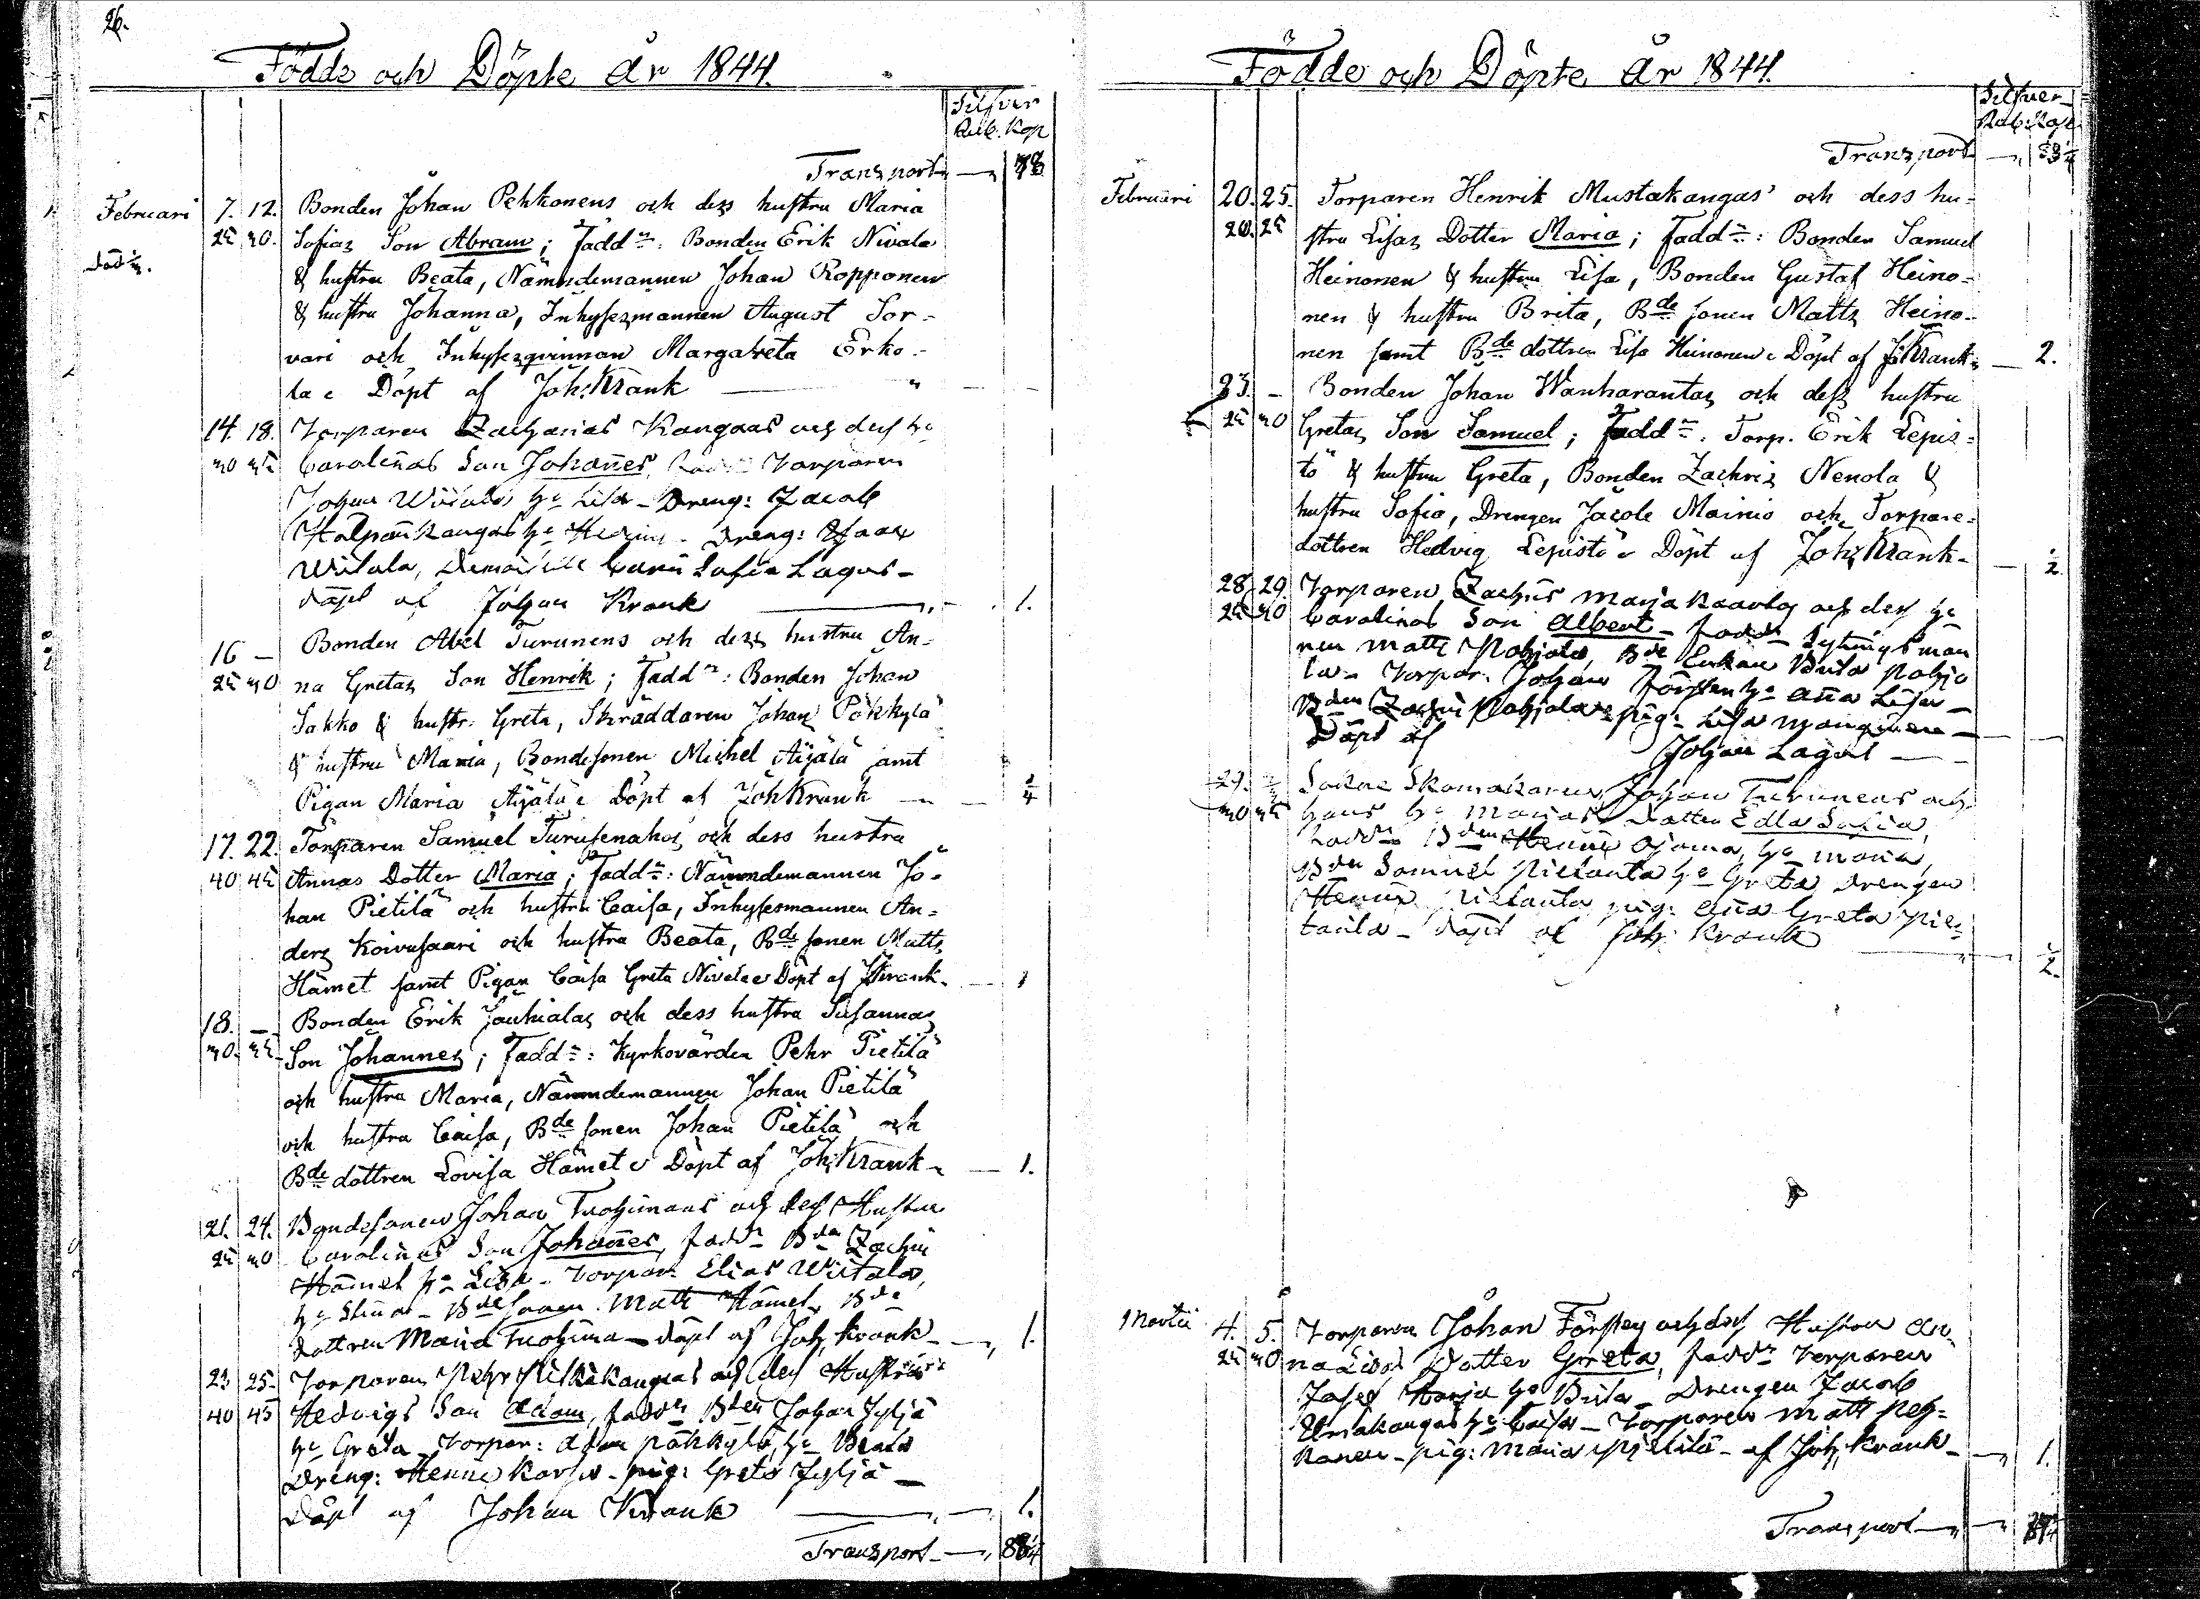 26.
Födde och Döpte År 1844.
Silfver
Rub. Kop
Transport — 78
Februari 7. 12. Bonden Johan Pehkonens och dess hustru Maria
25 30. Sofias Son Abram; Fadd:r: Bonden Erik Nivala
Död
& hustru Beata, Nämndemannen Johan Ropponen
& hustru Johanna, Inhysesmannen August Sor-
vari och Inhysesqvinnan Margareta Erko-
la Döpt af Joh: Krank — "
14. 18. Torparen Zacharias Kangaas och dess h:
30 35 Carolinas Son Johannes, Fadd: Torparen
Johan Wiitala h: Lisa - Dreng: Jacob
Halpankangas h: - Dreng: Isaac
Wiitala, Demoiselle Sofia Lagus -
döpt af Johan Krank — 1.
16 — Bonden Abel Turunens och dess hustru An-
25 30 na Gretas Son Henrik; Fadd:r: Bonden Johan
Sakko & hustr: Greta, Skräddaren Johan Pökkylä
& hustru Maria, Bondesonen Michel Äijälä samt
Pigan Maria Äijälä Döpt af Joh Krank —
17. 22. Torparen Samuel Turusenahos och dess hustru
40 45 Annas Dotter Maria; Fadd:r: Nämndemannen Jo-
han Pietilä och hustru Caisa, Inhysesmannen An-
ders Koivusaari och hustru Beata, B:de sonen Matts
Hämet samt Pigan Caisa Greta Nivala Döpt af J Krank. — 1
18. — Bonden Erik Jauhialas och dess hustru Susannas
30. 35 Son Johannes; Fadd:r: Kyrkovärden Pehr Pietilä
och hustru Maria, Nämndemannen Johan Pietilä
och hustru Caisa, B:de sonen Johan Pietilä och
B:de dottren Lovisa Hämet Döpt af Joh: Krank — 1.
21. 24. Bondesonen Johan Tuohimaas och dess Hustru
25 30 Carolinas Son Johannes, fadd:r B:den Zachris
Hämet h: Lisa - Torpar: Elias Wiitala,
h: Stina - B:de sonen Matts Hämet, B:de
dottren Maria Tuohimaa - döpt af Joh, Krank — 1.
23 25. Torparen Pehr Pitkäkangas och dess Hustrus
40 45 Hedvigs Son Adam, fadd:r B:den Johan Jyljä
h: Greta - Torpar: Adam Pökkylä, h: Beata
Dreng: Henric Karhu - pig: Greta Jyljä —
Döpt af Johan Krank — 1.
Transport —
Födde och Döpte År 1844.
Silfver
Rub. Kop.
Transport —
Februari 20. 25. Torparen Henrik Mustakangas' och dess hu-
20. 25 stru Lisas Dotter Maria; Fadd:r: Bonden Samuel
Heinonen & hustru Lisa, Bonden Gustaf Heino-
nen & hustru Brita, B:de sonen Matts Heino-
nen samt B:de dottren Lisa Heinonen Döpt af J: Krank. — 2.
23. — Bonden Johan Wanharantas och dess hustru
25 30 Gretas Son Samuel; Fadd:r: Torp. Erik Lepis-
tö & hustru Greta, Bonden Zachris Nenola &
hustru Sofia, Drengen Jacob Mainio och Torpare-
dottren Hedvig Lepistö Döpt af Joh: Krank. —
28 29. Torparen Zachris Marjakaarlas och dess h:
25 30 Carolinas Son Albert - fadd: Sytningsman
nen Matts Pohjala, B:de Enkan Brita Pohjo
la - Torpar: Johan Försten h: Anna Lisa —
B:den Zachris Pohjala - pig: Lisa Manginen —
Döpt af Johan Lagus —
29. Sockne Skomakaren Johan Turunens och
30 35 hans h: Marias Dotter Edla Sofia,
Fadd:r B:den Henric Ojama, h: Maria,
B:den Samuel Pielanta h: Greta, Drengen
Henric Pielanta pig: Anna Greta Pie-
lanta - döpt af Joh: Krank —
Martii 4. 5. Torparen Johan Förstens och dess Hustru An-
25 30 na Lisas Dotter Greta, fadd:r Torparen
Josef Harja h: Brita - Drengen Jacob
Elmakangas h: Caisa - Torparen Matts Peh-
konen - pig: Maria Pietilä - af Joh, Krank — 1.
Transport —